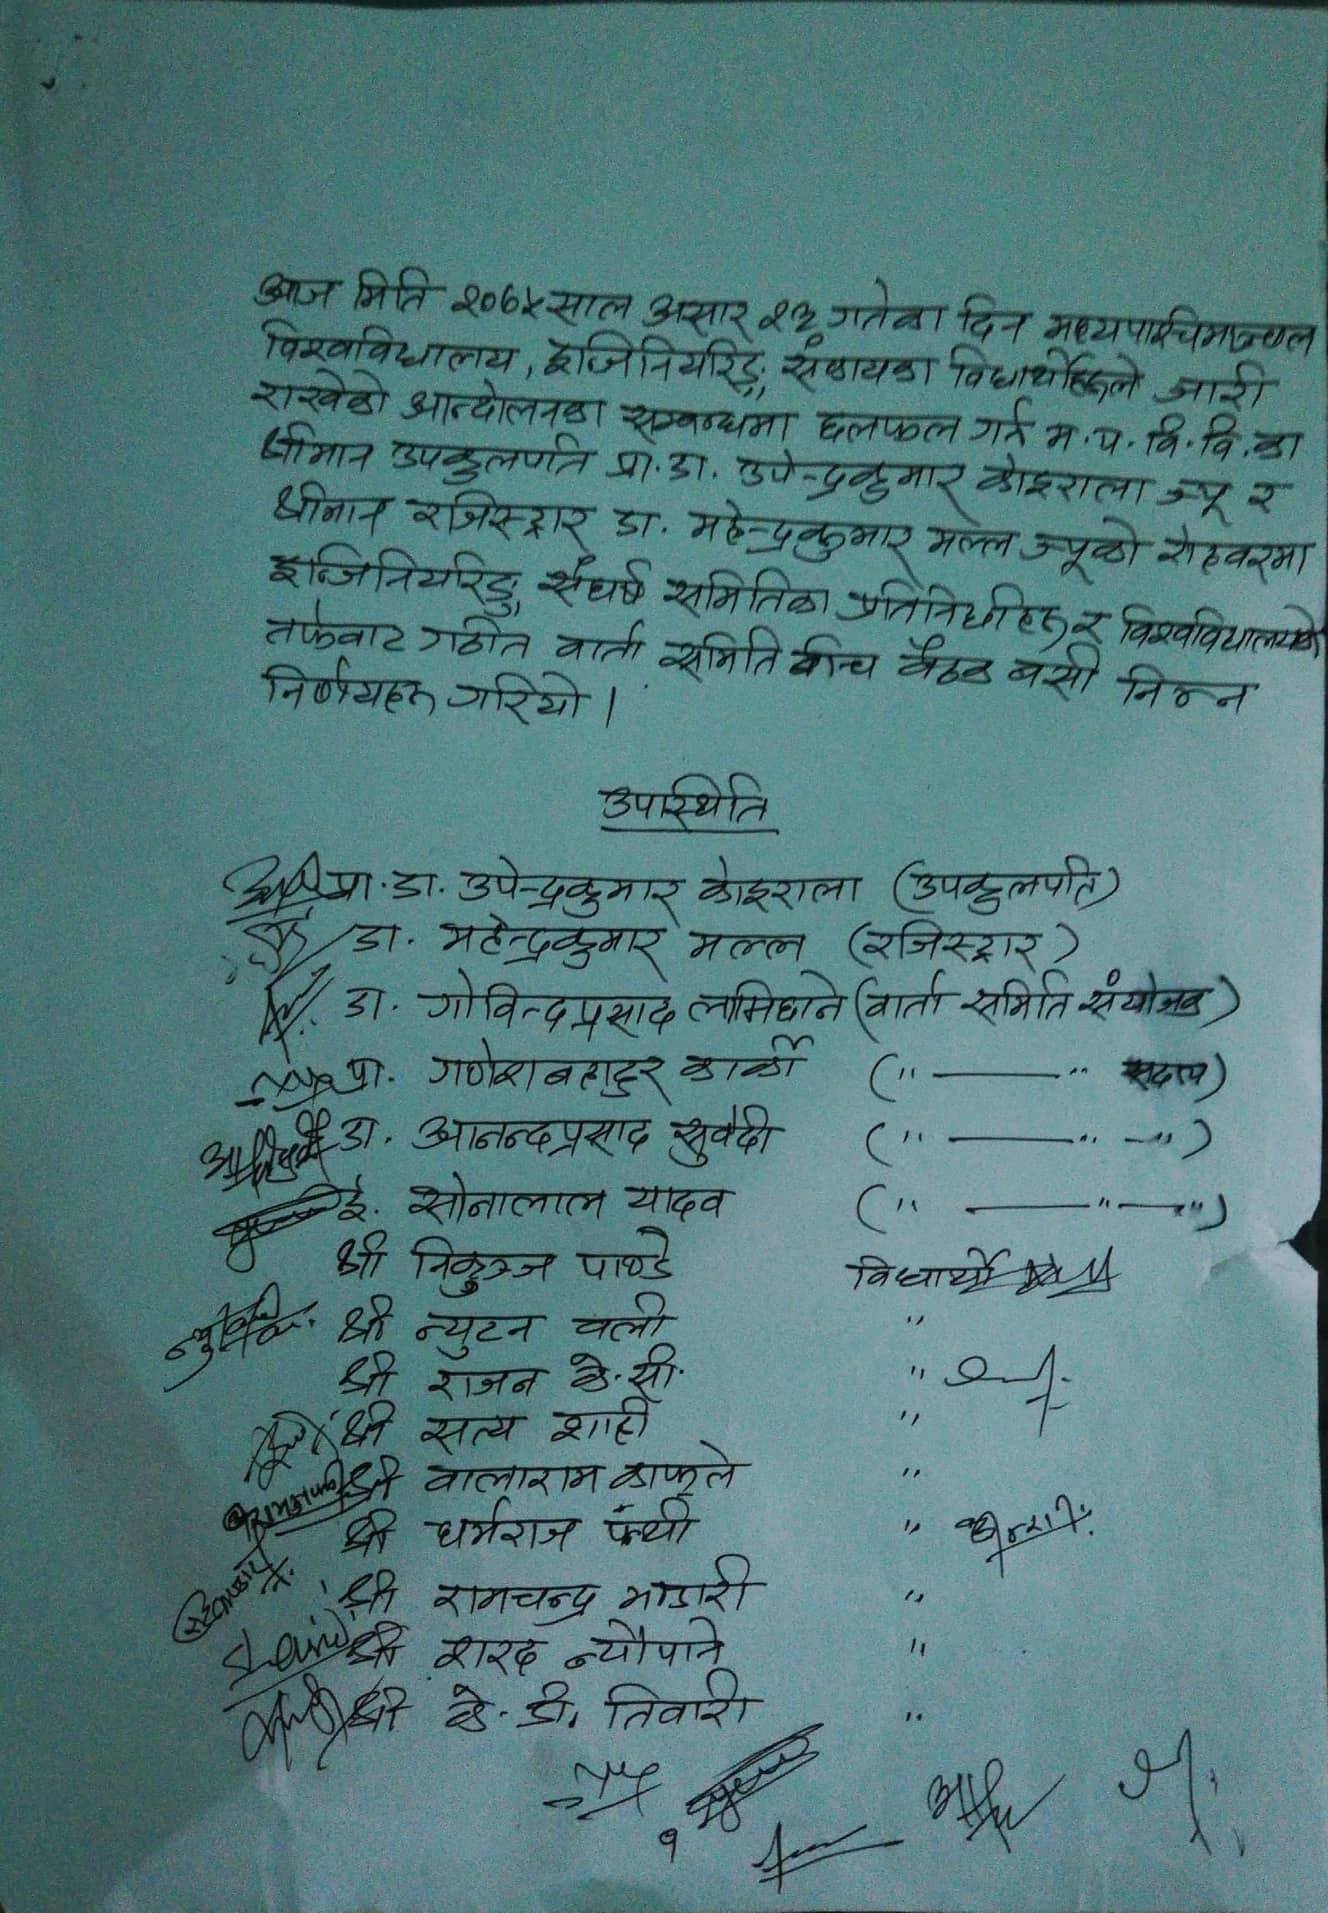 आज मिति २०७५ साल असार २३ गतेका दिन मध्यपश्चिमाञ्चल
विश्वविद्यालय, इन्जिनियरिङ्ग संकायका विद्यार्थीहरूले जारी
राखेको आन्दोलनका सम्बन्धमा छलफल गर्न म.प.वि.वि.का
श्रीमान उपकुलपति प्रा.डा. उपेन्द्रकुमार कोइराला ज्यू र
श्रीमान रजिस्ट्रार डा. महेन्द्रकुमार मल्ल ज्यूको रोहवरमा
इन्जिनियरिङ्ग संघर्ष समितिका प्रतिनिधीहरू र विश्वविद्यालयको
तर्फबाट गठीत वार्ता समिति बीच बैठक बसी निम्न
निर्णयहरू गरियो।
उपस्थिति
प्रा.डा. उपेन्द्रकुमार कोइराला (उपकुलपति)
डा. महेन्द्रकुमार मल्ल (रजिस्ट्रार)
डा. गोविन्दप्रसाद लामिछाने (वार्ता समिति संयोजक)
प्रा. गणेशबहादुर कार्की (" —— " सदस्य)
डा. आनन्दप्रसाद सुवेदी (" —— " —")
ई. सोनालाल यादव (" —— " —")
श्री निकुञ्ज पाण्डे विद्यार्थी
श्री न्युटन वली "
श्री राजन के.सी. "
श्री सत्य शाही "
श्री वालाराम काफ्ले "
श्री धर्मराज पंथी "
श्री रामचन्द्र भण्डारी "
श्री शरद न्यौपाने "
श्री के.डी. तिवारी "
१